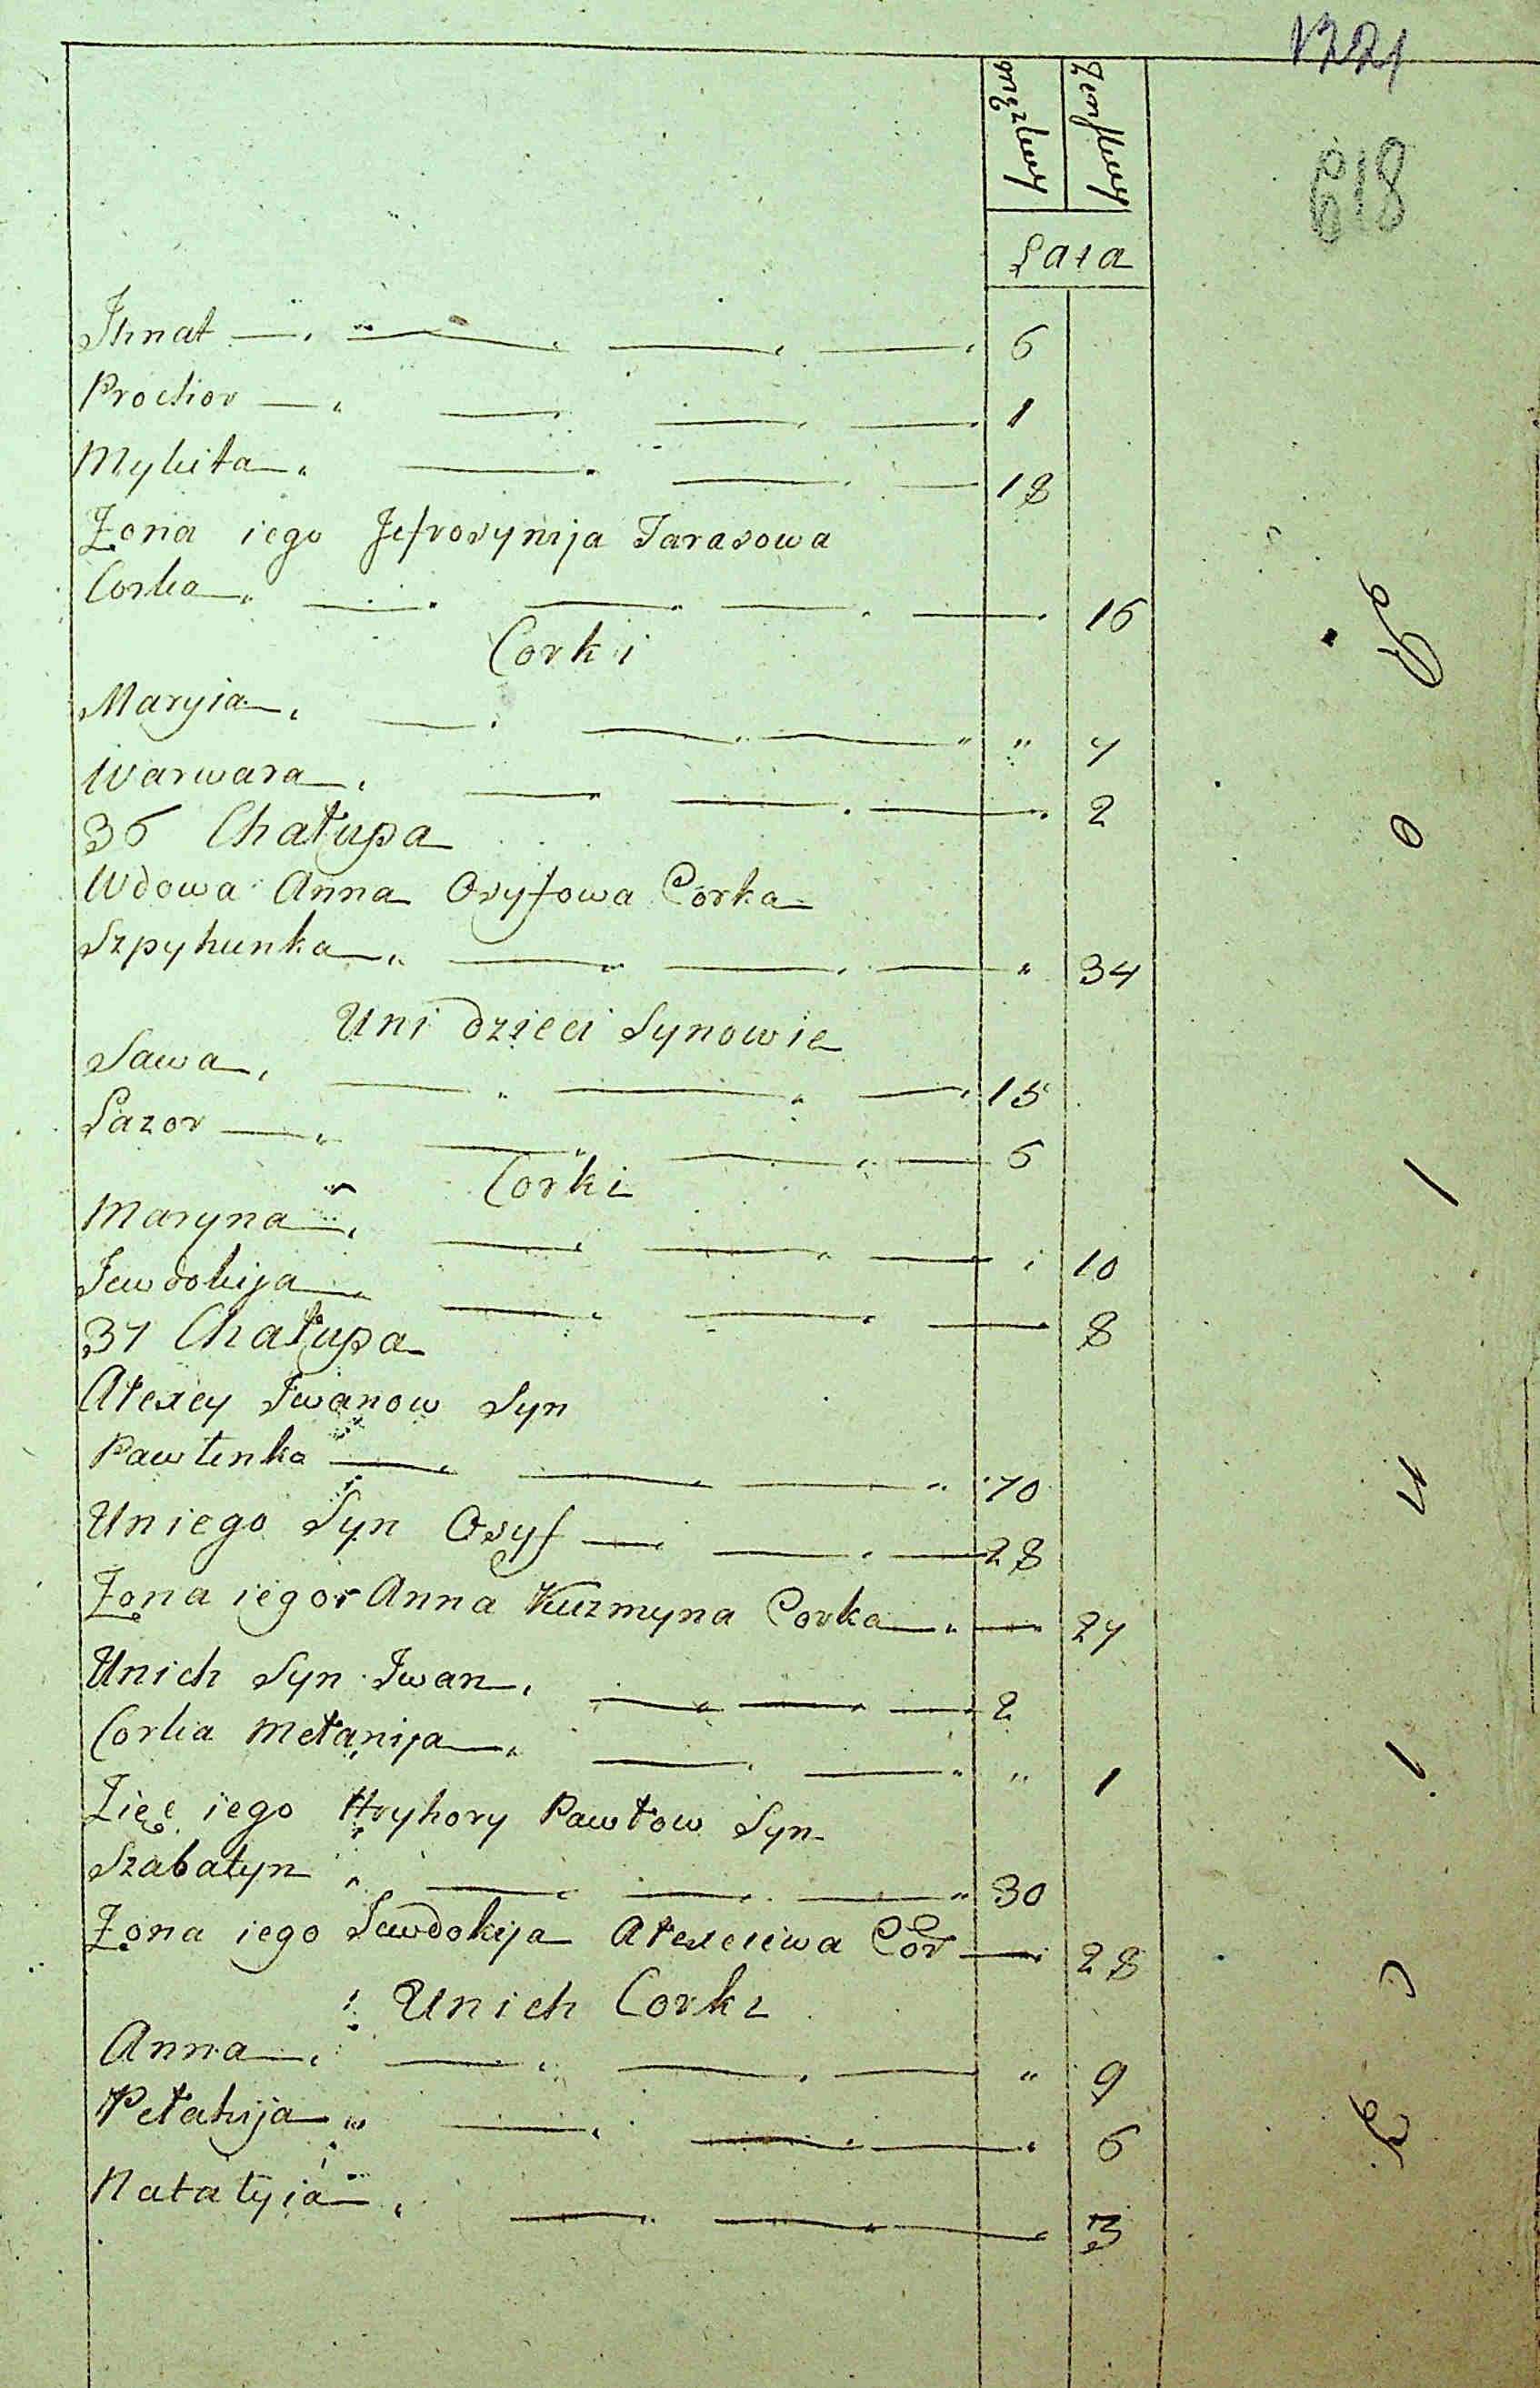 1221
618
męzkiey żenskiey
Lata
Ihnat 6
Prochor 1
Mykita 18
Zona iego Jefrosynija Tarasowa
Corka 16
Corki
Maryia " 7
Warwara 2
36 Chałupa
Wdowa Anna Osyfowa Corka
Szpyhunka " 34
Uni dzieci Synowie
Sawa 15
Łazor 6
Corki
Maryna 10
Jewdokija 8
37 Chałupa
Ałexey Iwanow Syn
Pawłenko 70
Uniego Syn Osyf 28
Zona iego Anna Kuzmyna Corka 27
Unich Syn Iwan 2
Corka Mełanija " 1
Zięć iego Hryhory Pawłow Syn
Szabatyn 30
Zona iego Jewdokija Ałexeiewa Cor 28
Unich Corki
Anna " 9
Pełahija 6
Natałyia 3